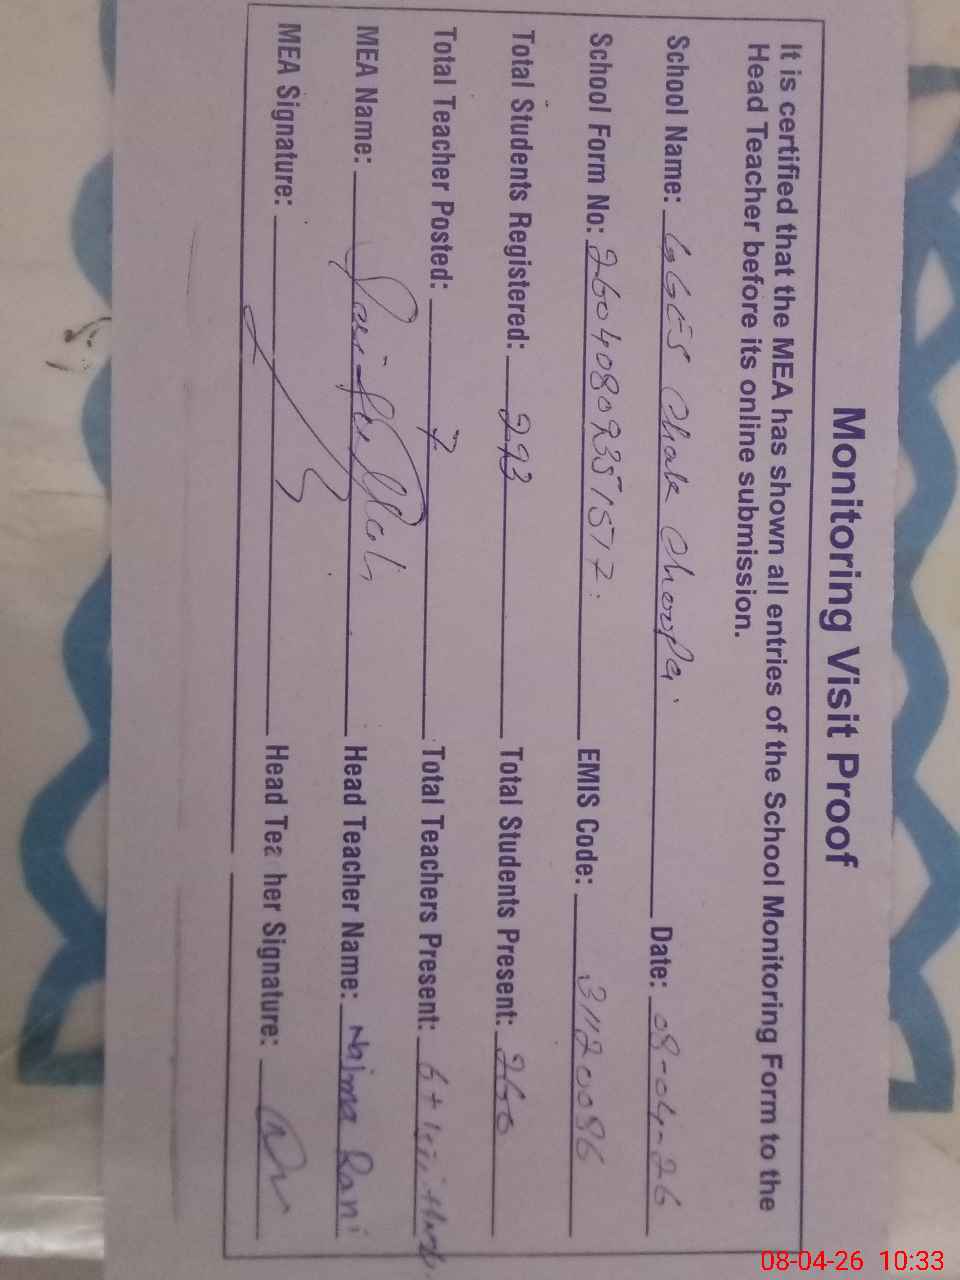 Monitoring Visit Proof
It is certified that the MEA has shown all entries of the School Monitoring Form to the
Head Teacher before its online submission.
School Name: GGES Chak Date: 08-04-26
School Form No: EMIS Code: 31120096
Total Students Registered: 293 Total Students Present: 260
Total Teacher Posted: 7 Total Teachers Present: 6+1
MEA Name: Head Teacher Name: Najma Rani
MEA Signature: Head Teacher Signature:
08-04-26 10:33